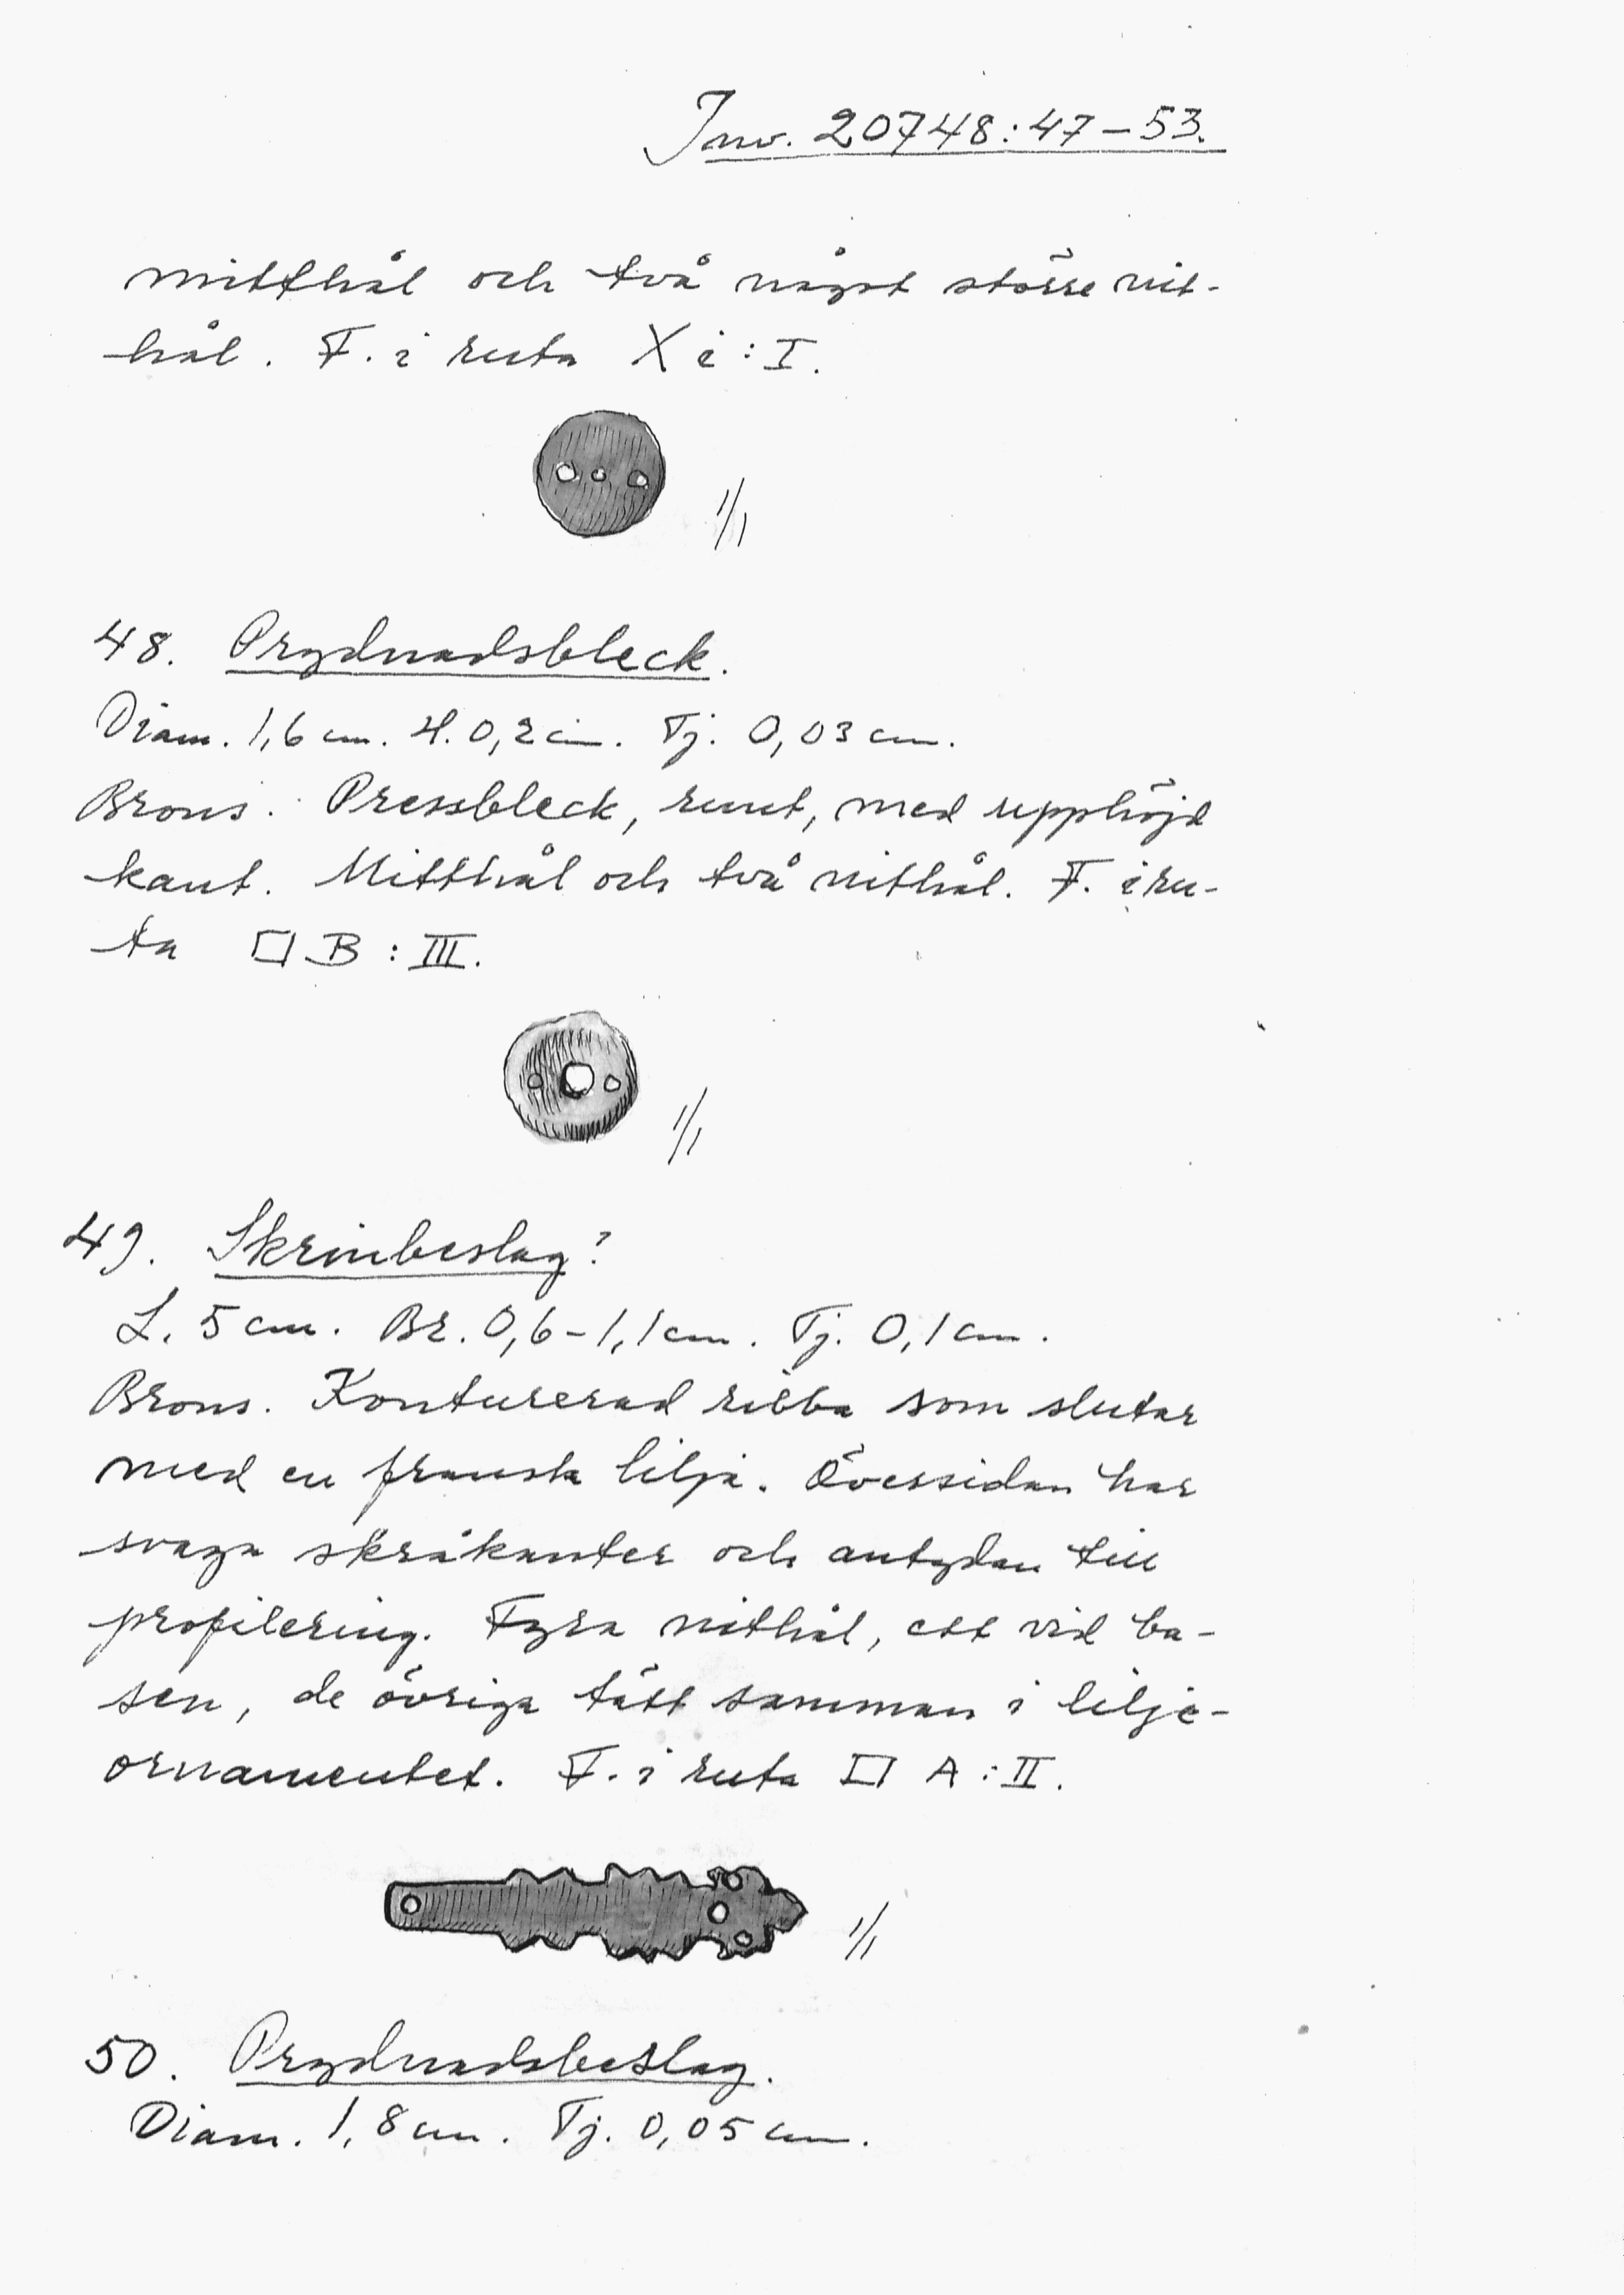 Inv. 20748:47–53.
mitthål och två något större nit-
hål. F. i ruta X i : I.
1/1
48. Prydnadsbleck.
Diam. 1,6 cm. H. 0,2 cm. Tj. 0,03 cm.
Brons. Pressbleck, runt, med upphöjd
kant. Mitthål och två nithål. F. i ru-
ta □ B : III.
1/1
49. Skrinbeslag?
L. 5 cm. Br. 0,6–1,1 cm. Tj. 0,1 cm.
Brons. Konturerad ribba som slutar
med en fransk lilja. Översidan har
svaga skråkanter och antydan till
profilering. Fyra nithål, ett vid ba-
sen, de övriga tätt samman i lilje-
ornamentet. F. i ruta □ A : II.
1/1
50. Prydnadsbeslag.
Diam. 1,8 cm. Tj. 0,05 cm.